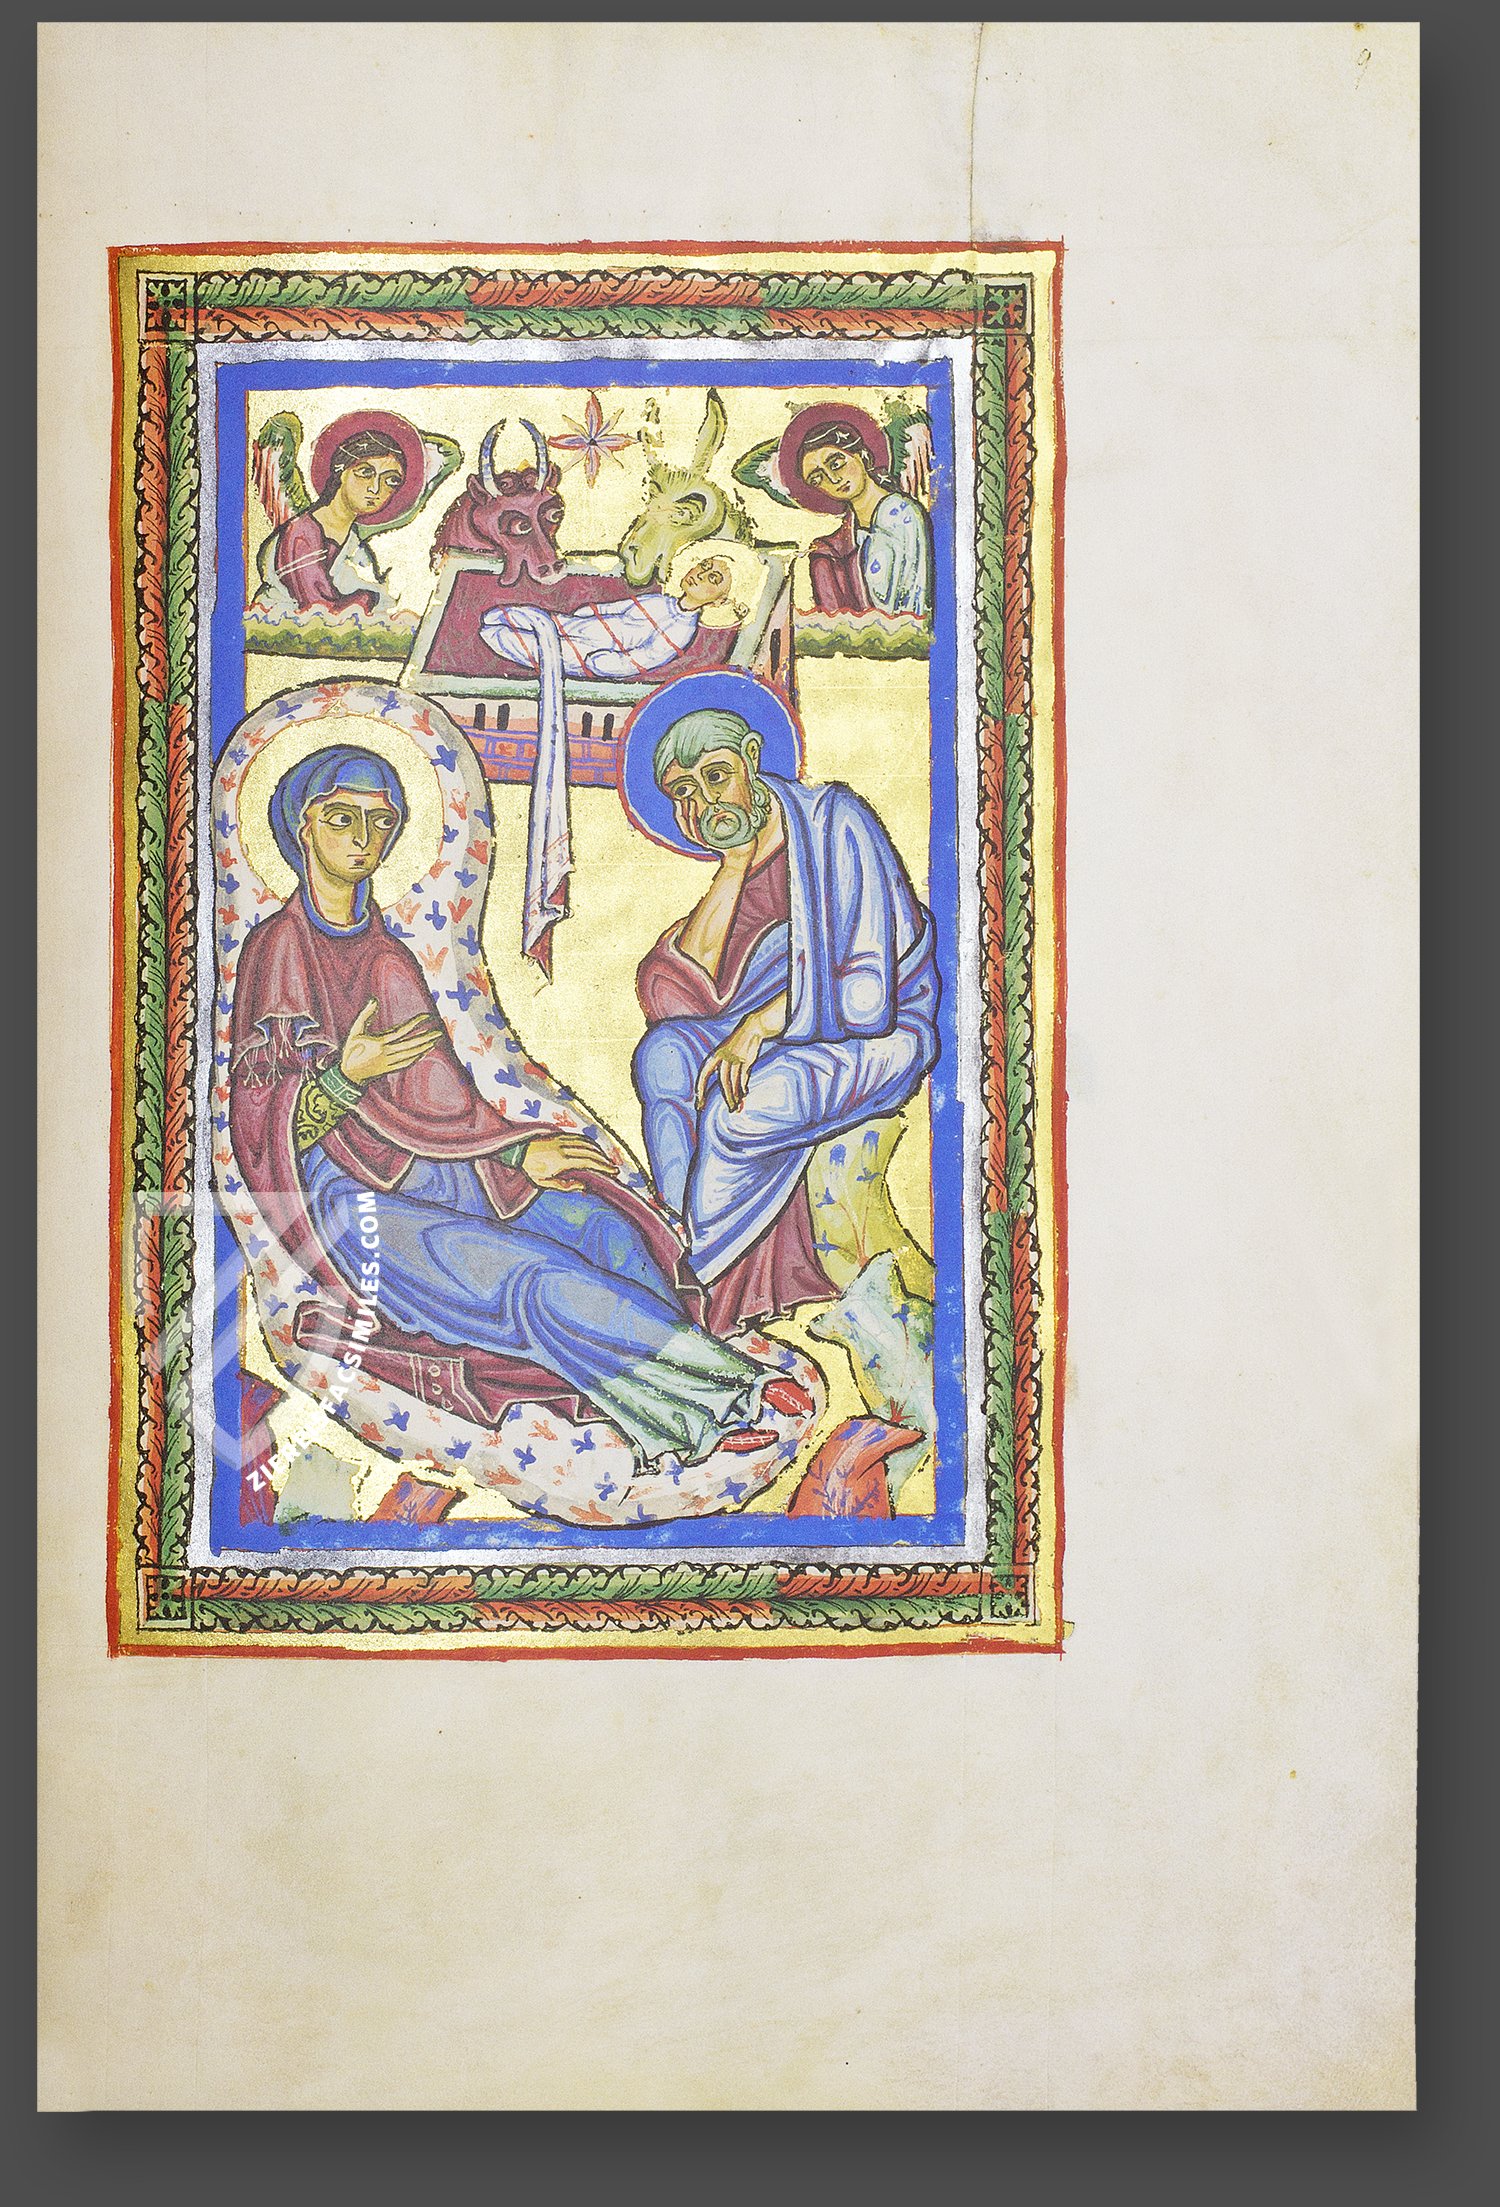 9
ZIEREIS FACSIMILES.COM